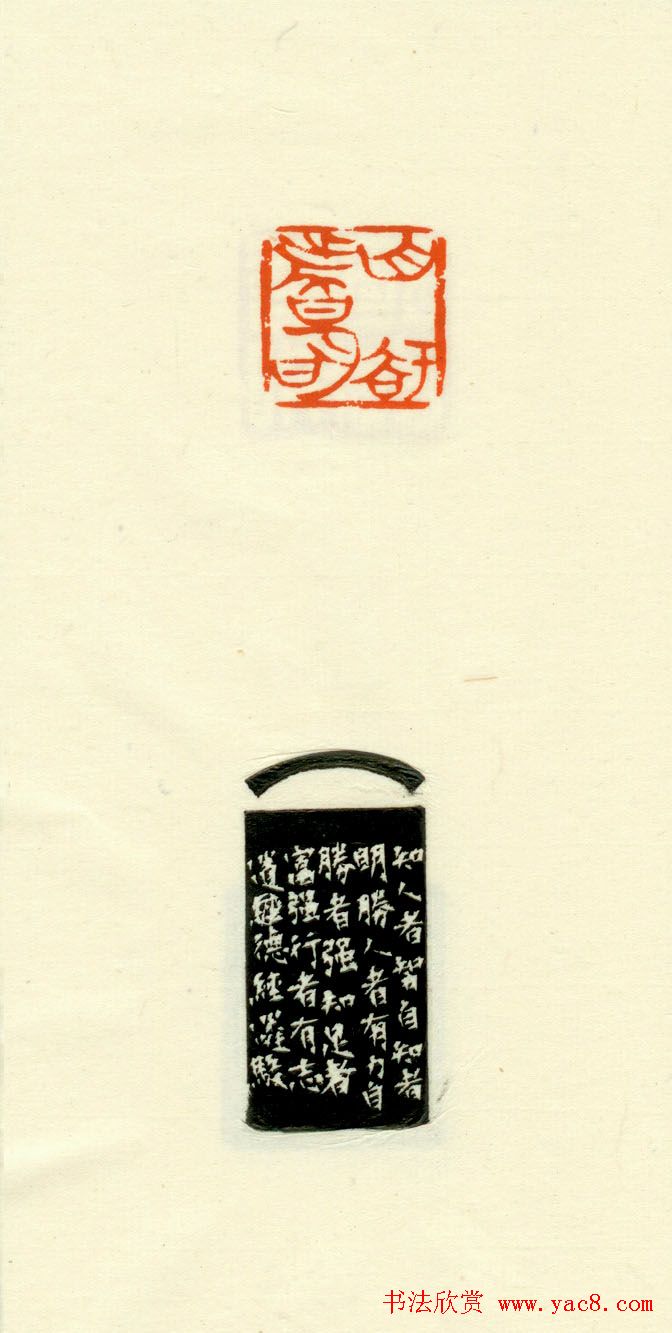 知人者智自知者
明勝人者有力自
勝者强知足者
富强行者有志
道德經
书法欣赏 www.yac8.com